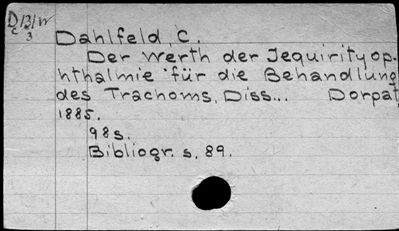 D/3/W
c 3
Dahlfeld, C.
Der Werth der Jequirityop-
hthalmie für die Behandlung
des Trachoms, Diss... Dorpat,
1885.
98s.
Bibliogr. s. 89.